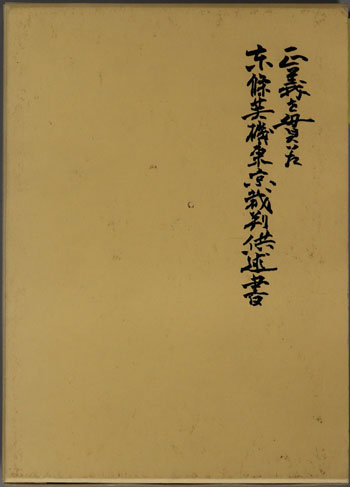 正義を貫け
東條英機東京裁判供述書